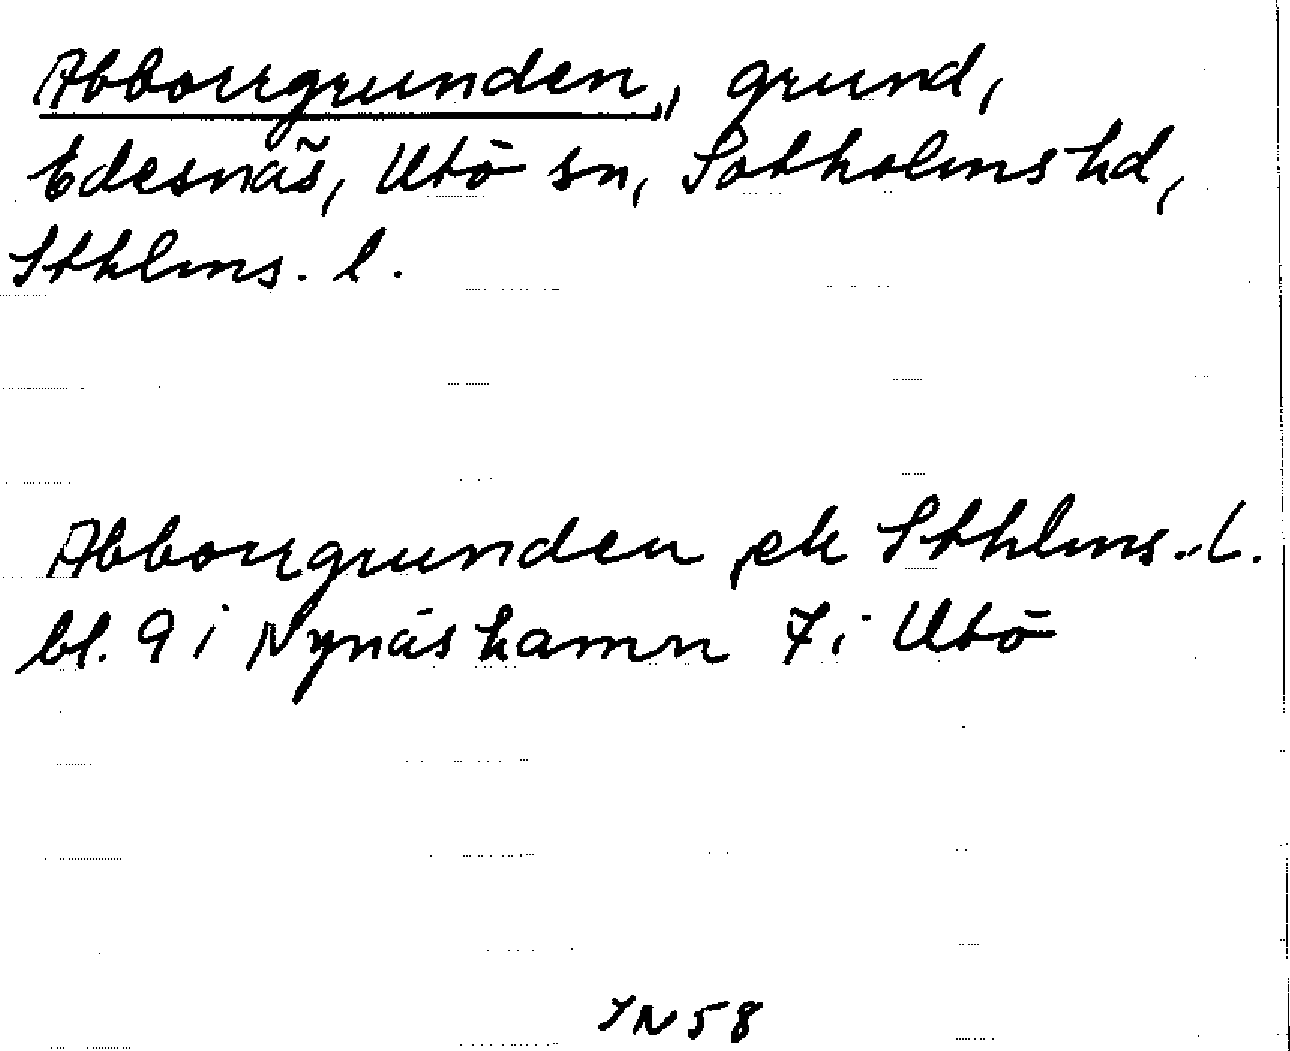 Abborrgrunden, grund,
Edesnäs, Utö sn, Sotholms hd,
Sthlms. l.
Abborrgrunden, ek Sthlms. l.
bl. 9 i Nynäshamn 7 i Utö
YN 58